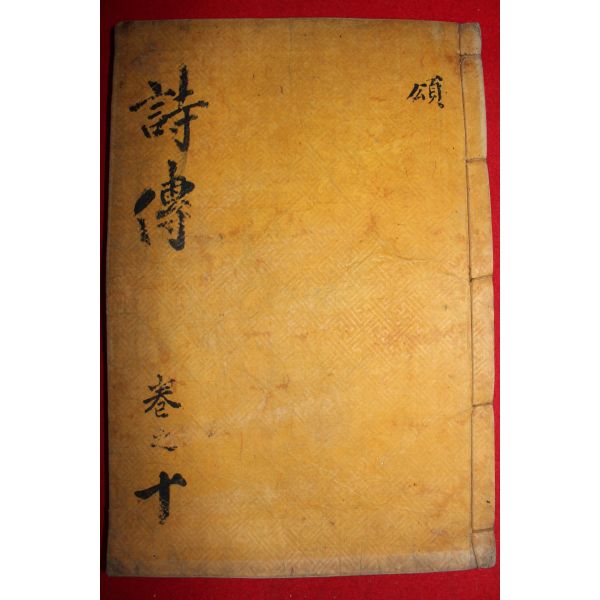 頌
詩傳
卷之十